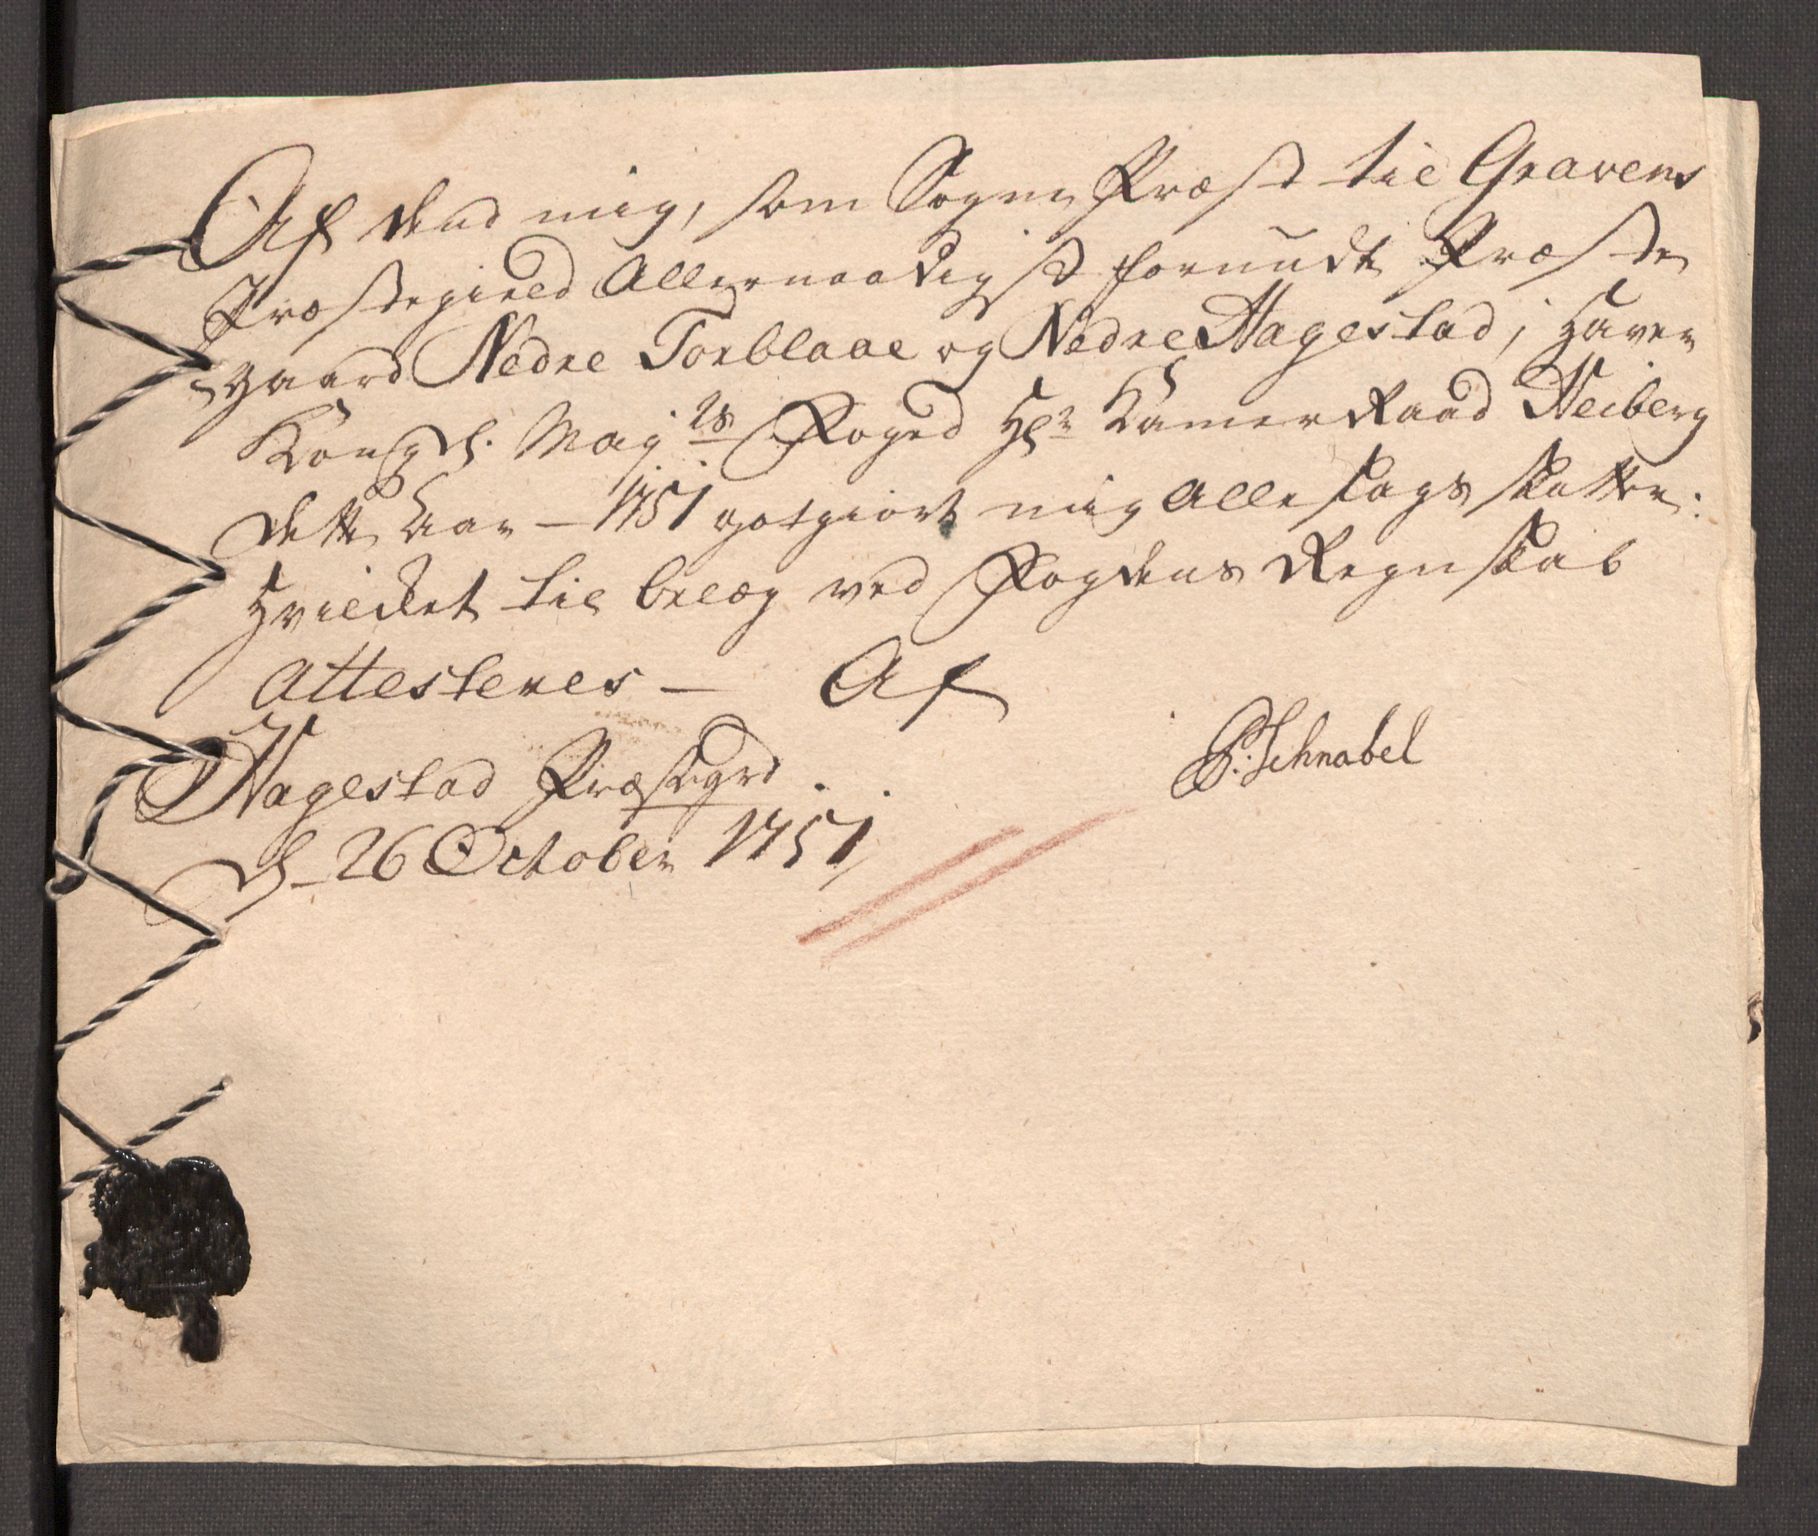 Af dend mig, som Sogne Præst til Gravens
Præstegield Allernaadigst forundte Præste
gaard Nedre Torblaae og Nedre Hagestad, haver
Kongel. Maj:ts Foged Hr. Kamer Raad Heiberg
dette Aar - 1751 godtgiort mig alle slags skatter:
hvilcket til belæg ved Fogdens Regnskab
attesteres - Af
P: Schnabel
Hagestad Præstegrd.
d. 26 October 1751,